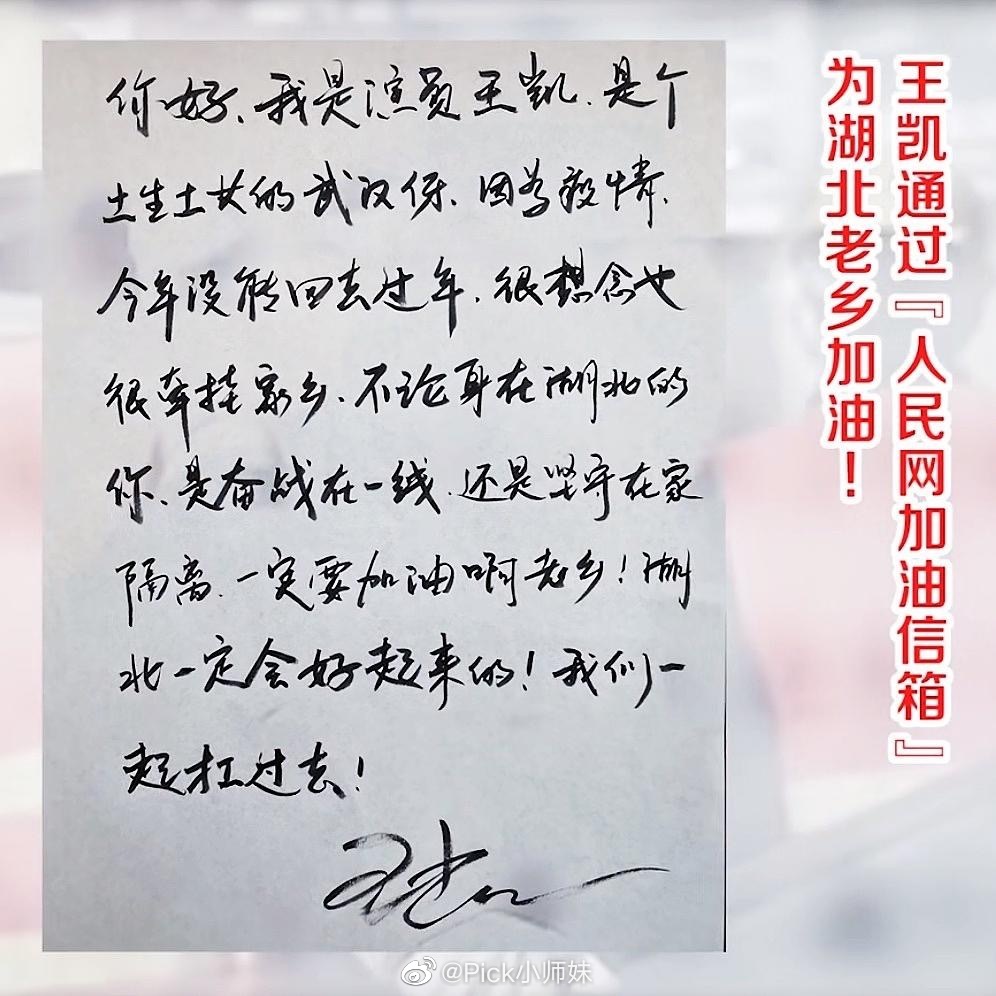 你好、我是演员王凯、是个
土生土长的武汉伢、因为疫情、
今年没能回去过年、很想念也
很牵挂家乡、不论身在湖北的
你、是奋战在一线、还是坚守在家
隔离、一定要加油啊老乡！湖
北一定会好起来的！我们一
起扛过去！
王凯
王凯通过『人民网加油信箱』
为湖北老乡加油！
@Pick小师妹